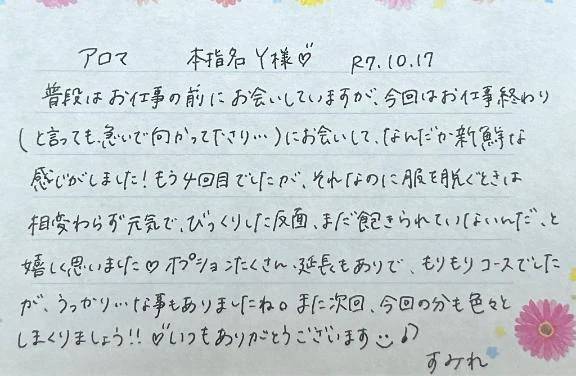 アロマ 本指名 Y様♡ R7.10.17
普段はお仕事の前にお会いしていますが、今回はお仕事終わり
(と言っても、急いで向かってたさり…)にお会いして、なんだか新鮮な
感じがしました!もう4回目でしたが、それなのに服を脱ぐときは
相変わらず元気で、びっくりした反面、まだ飽きられていないんだ、と
嬉しく思いました♡オプションたくさん、延長もありで、もりもりコースでした
が、うっかり…な事もありましたね。また次回、今回の分も色々と
しまくりましょう!!♡いつもありがとうございます☺♪
すみれ